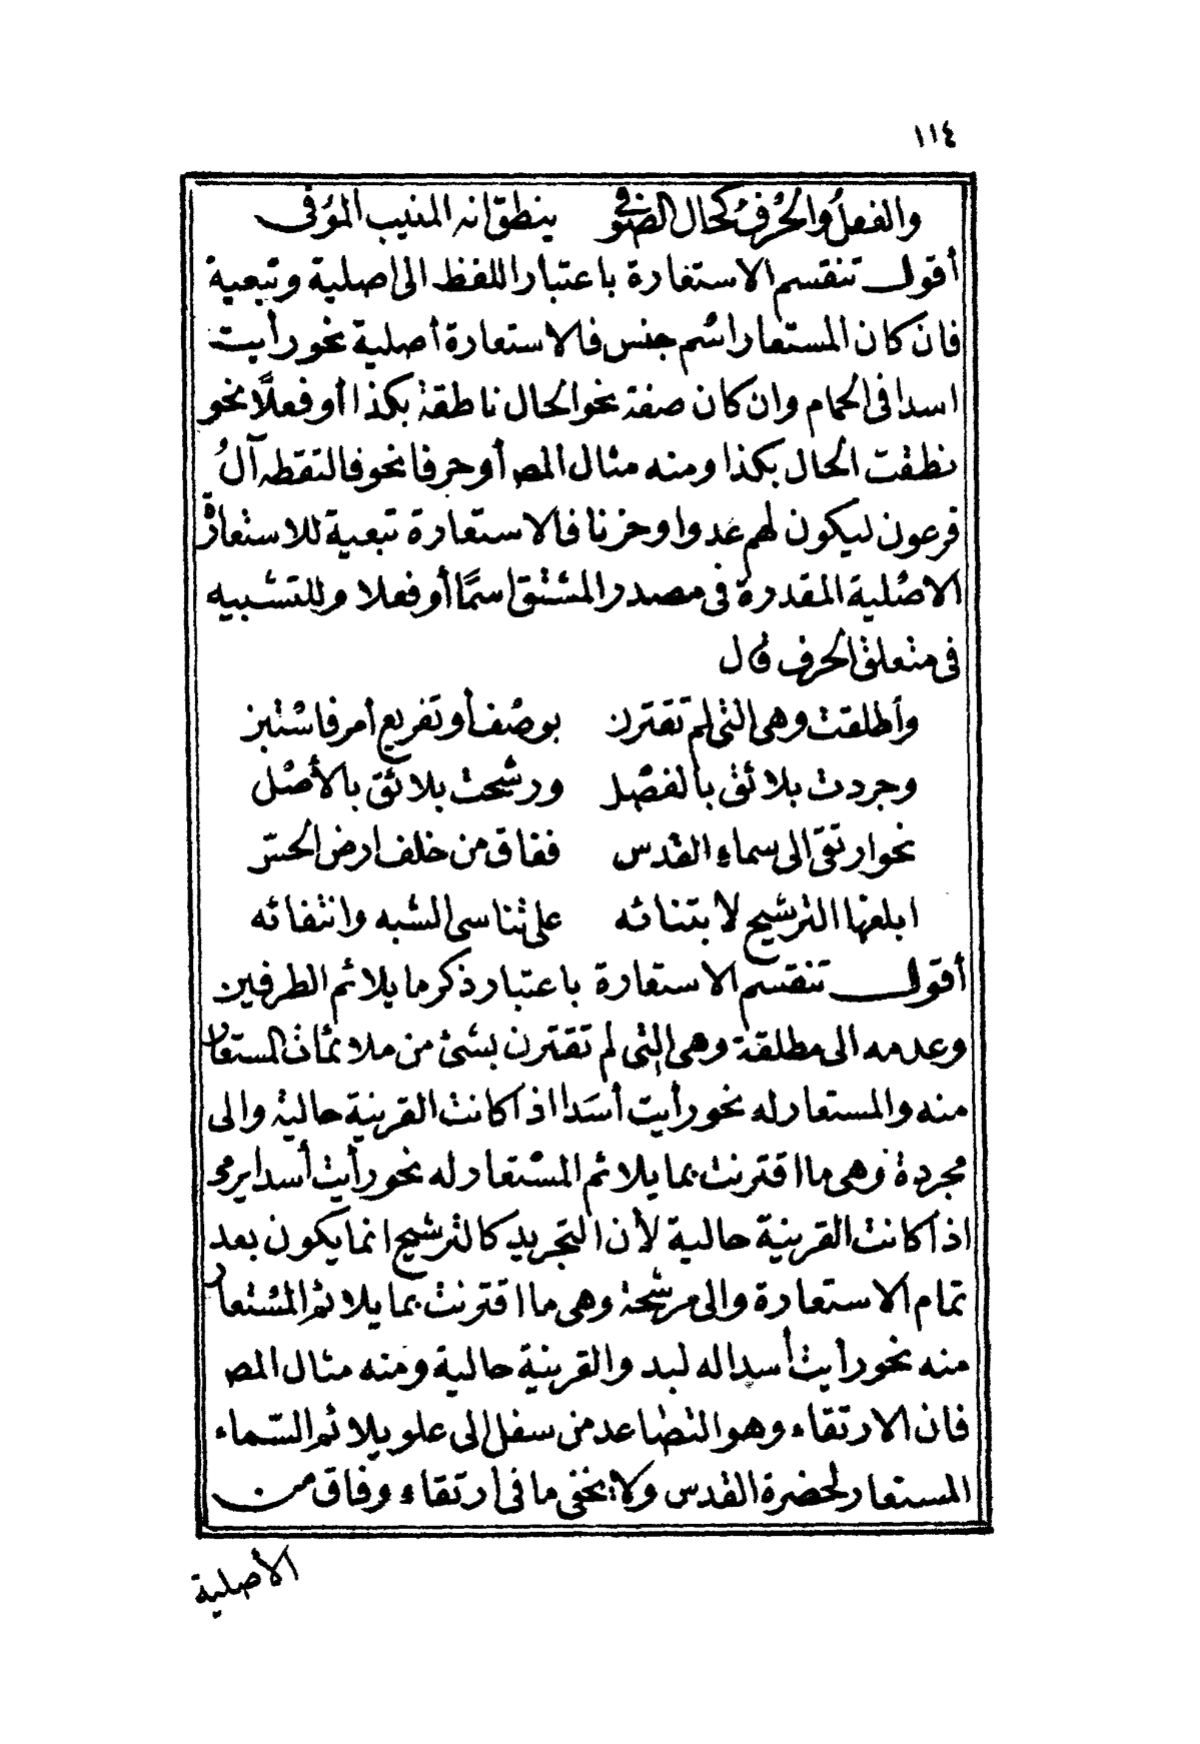 ١١٤
والفعلُ والحُرفُ كحال الصّوفى ينطق انه المنيب الموُفى
أقول تنقسم الاستعارة باعتبار اللفظ الى اصلية وتبعية
فان كان المستعار اسْم جنس فالاستعارة أصلية نحو رأيت
اسدا فى الحمام وان كان صفة نحو الحال ناطقة بكذا أو فعلًا نحو
نطقت الحال بكذا ومنه مثال المص أو حرفا نحو فالتقطه آلُ
فرعون ليكون لهم عدوا وحزنا فالاستعارة تبعية للاستعارة
الاصْلية المقدرة فى مصدر المشتق اسمًا أو فعلا وللتشبيه
فى متعلق الحرف قال
وأطلقت وهى التى لم تقترن بوصْف أو تفريع أمر فاسْتبن
وجردت بلائق بالفصْل ورشحت بلائق بالأصْل
نحو ارتقى الى سماء القدس ففاق من خلف ارض الحسّ
ابلغها الترشيح لابتنائه على تناسى الشبه وانتفائه
أقول تنقسم الاستعارة باعتبار ذكر ما يلائم الطرفين
وعدمه الى مطلقة وهى التى لم تقترن بشئ من ملائمات المستعار
منه والمستعار له نحو رأيت أسَدا اذا كانت القرينة حالية والى
مجردة وهى ما اقترنت بما يلائم المسْتعار له نحو رأيت أسدا يرمى
اذا كانت القرينة حالية لأن التجريد كالترشيح انما يكون بعد
تمام الاستعارة والى مرشحة وهى ما اقترنت بما يلائم المسْتعار
منه نحو رأيت أسدا له لبد والقرينة حالية ومنه مثال المص
فان الارتقاء وهو التصاعد من سفل الى علو يلائم السّماء
المستعار لحضرة القدس ولا يخفى ما فى ارتقاء وفاق من
الأصلية